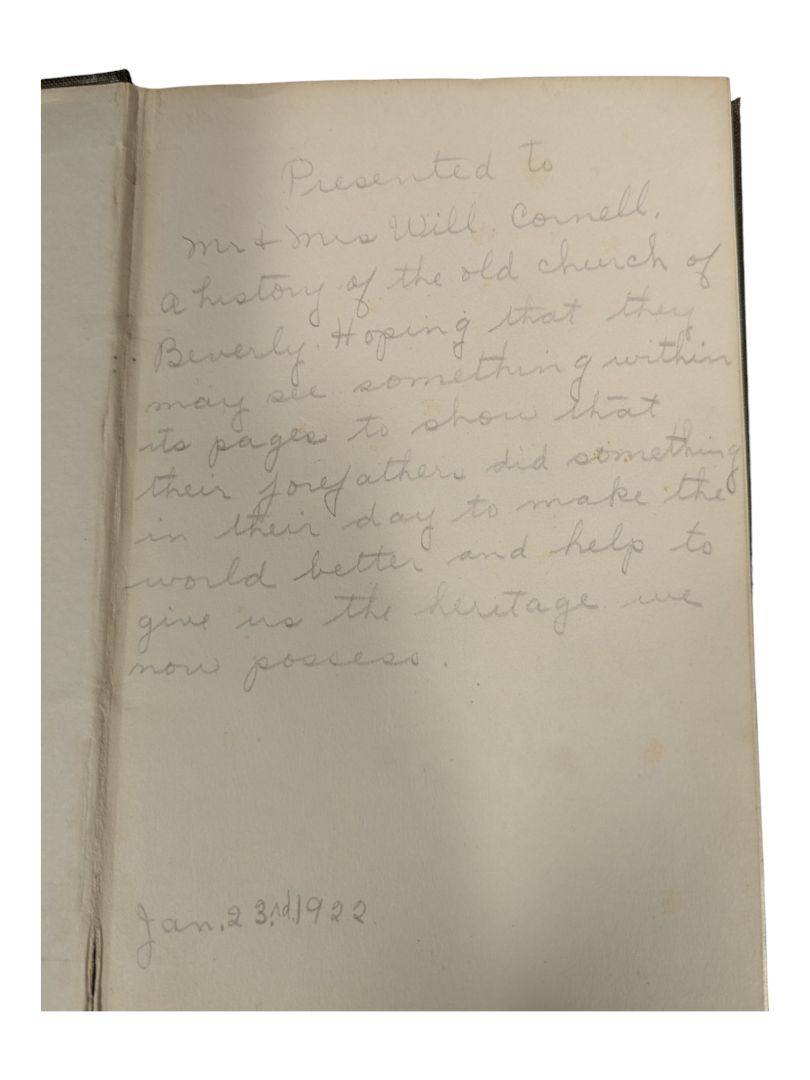 Presented to
Mr + Mrs Will. Cornell,
a history of the old church of
Beverly. Hoping that they
may see something within
its pages to show that
their forefathers did something
in their day to make the
world better and help to
give us the heritage we
now possess.
Jan. 23rd. 1922.